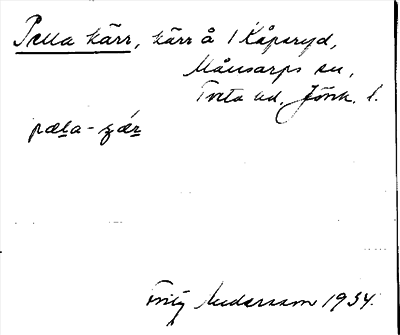 Pella kärr, kärr å 1 Kåperyd,
Månsarps sn,
Tveta hd. Jönk. l.
pæla - çær
Fritz Andersson 1934.